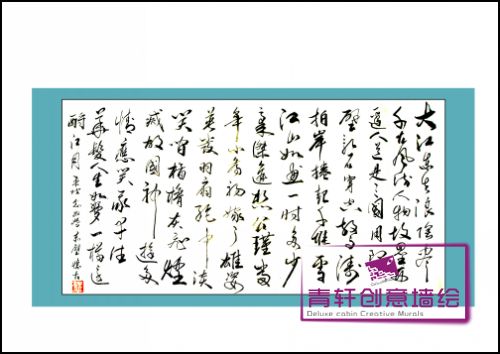 大江东去浪淘尽
千古风流人物故垒西
边人道是三国周郎
壁乱石穿空惊涛
拍岸捲起千堆雪
江山如画一时多少
豪杰遥想公瑾当
年小乔初嫁了雄姿
英发羽扇纶巾谈
笑间樯橹灰飞烟
灭故国神游多
情应笑我早生
华发人生如梦一樽还
酹江月
青轩创意墙绘
Deluxe cabin Creative Murals